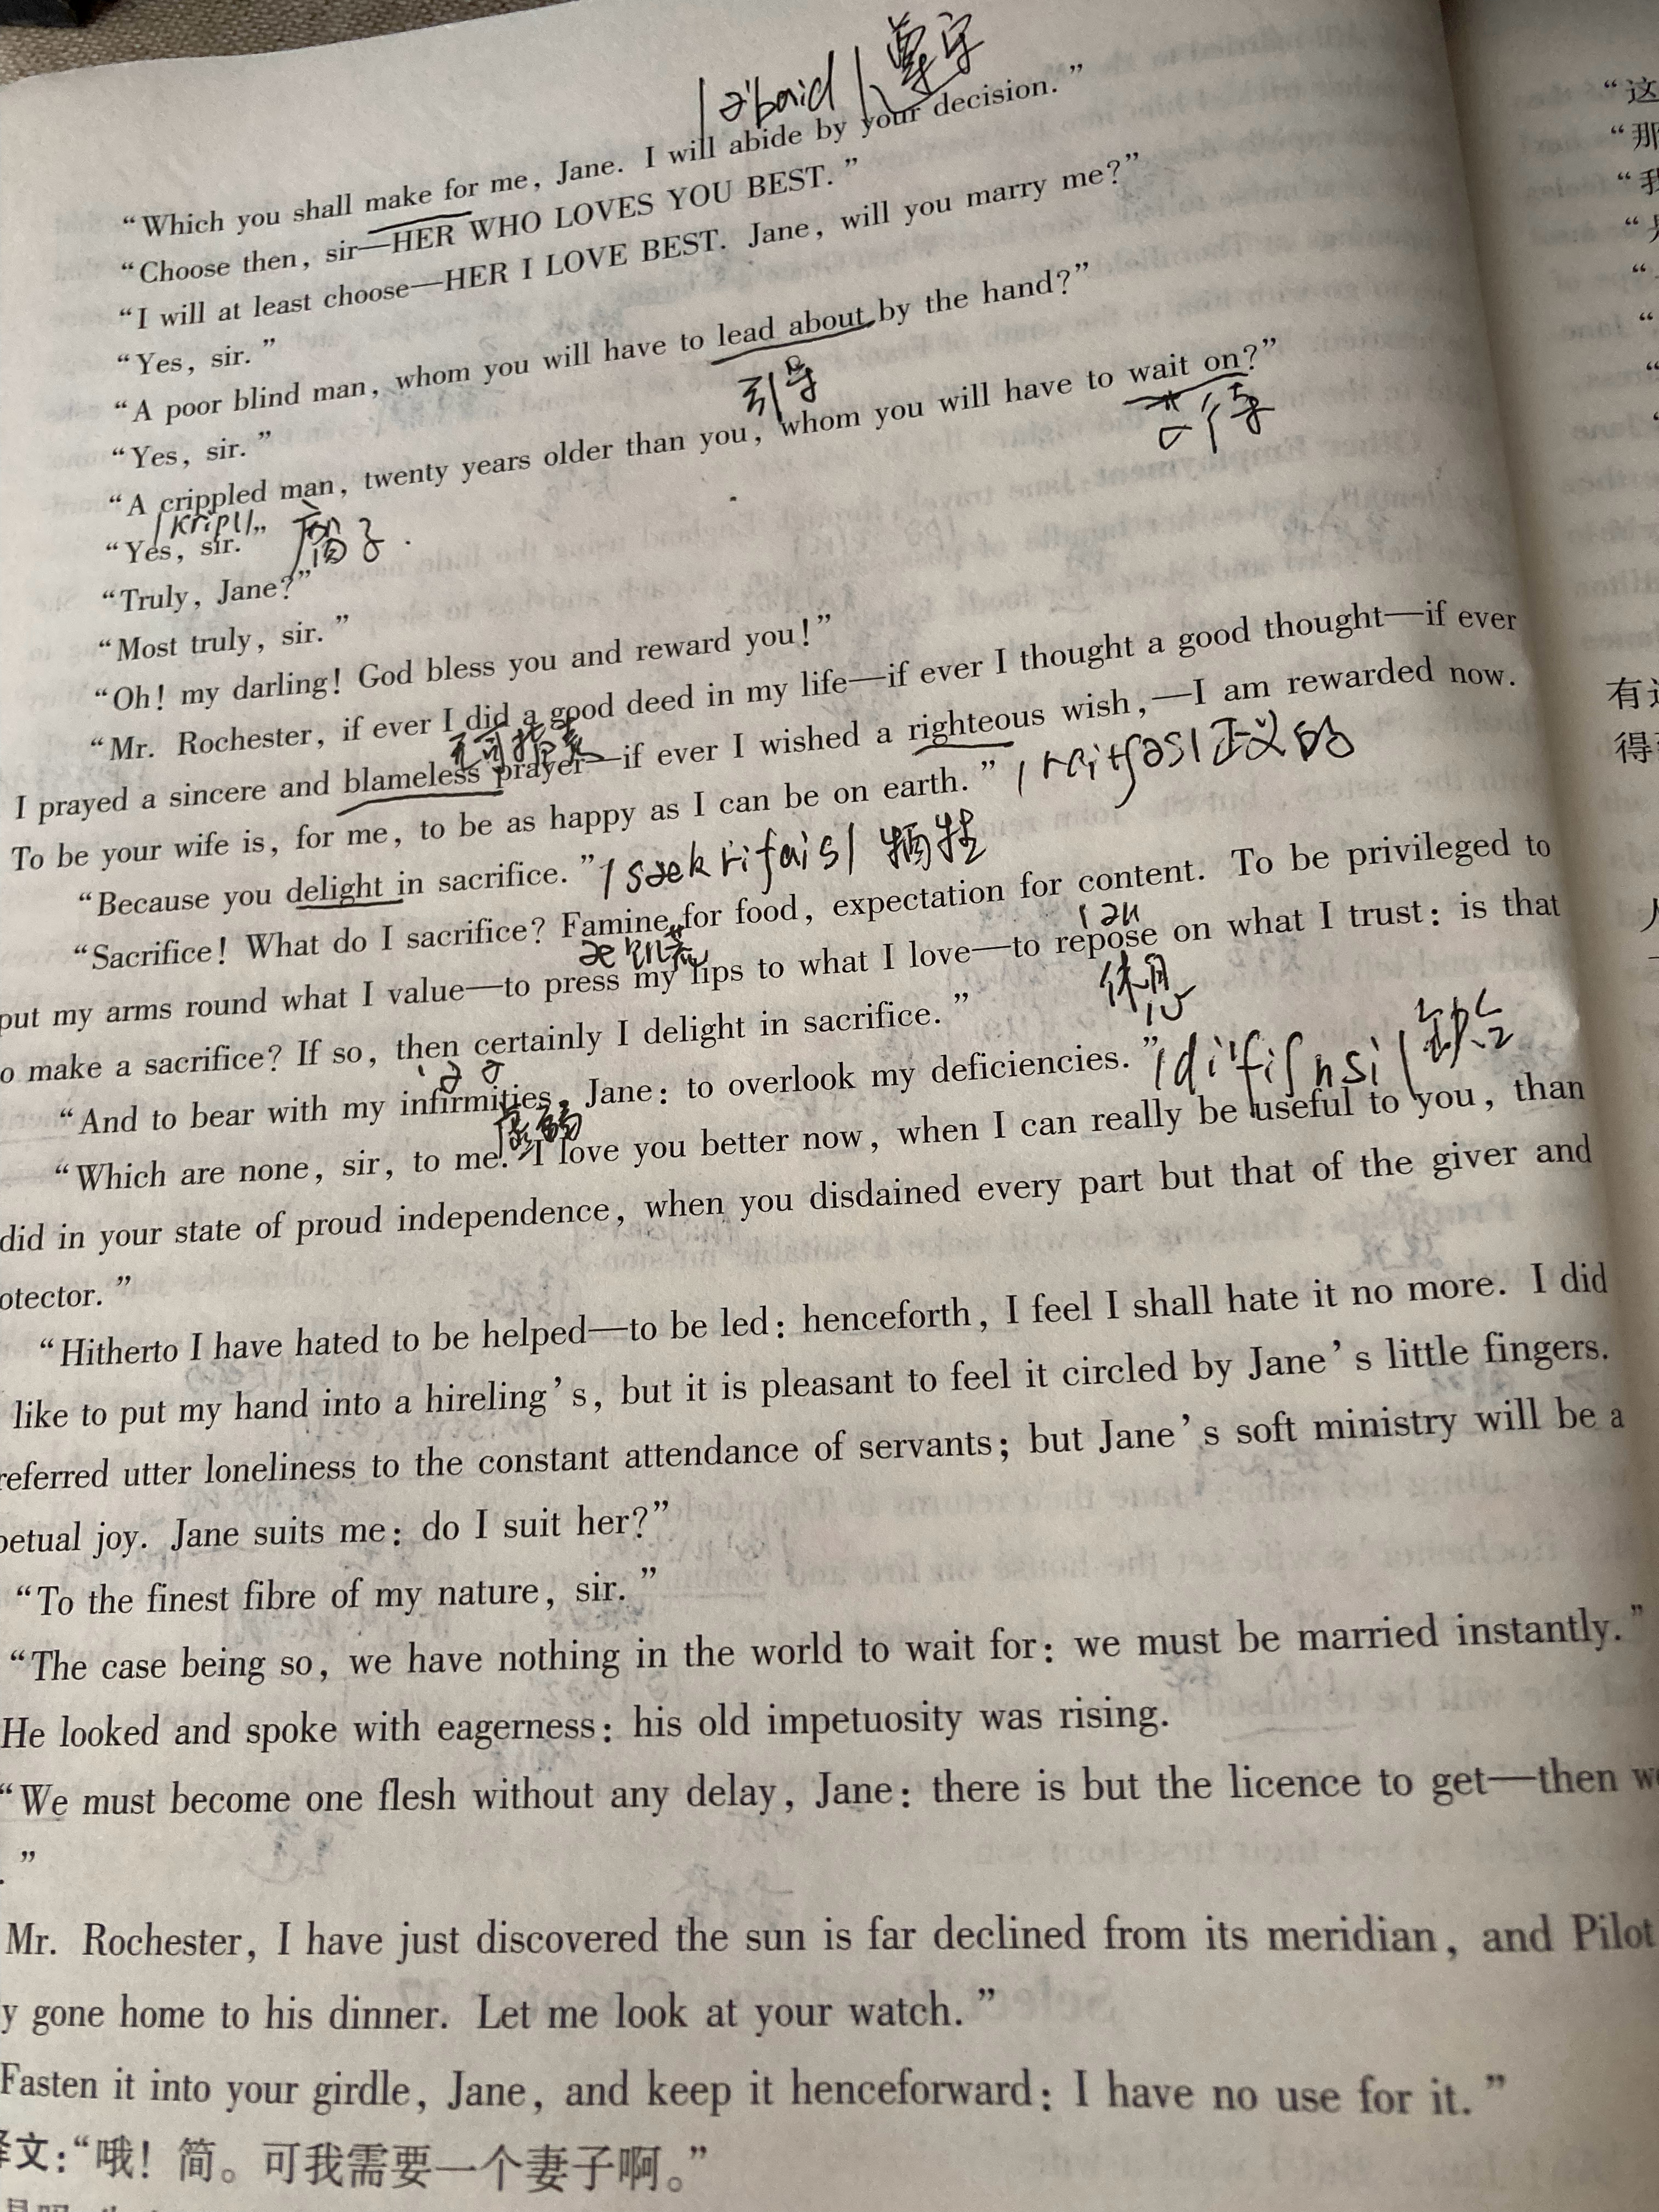 /ə'baid/ 遵守
“Which you shall make for me, Jane. I will abide by your decision.”
“Choose then, sir—HER WHO LOVES YOU BEST.”
“I will at least choose—HER I LOVE BEST. Jane, will you marry me?”
“Yes, sir.”
“A poor blind man, whom you will have to lead about by the hand?”
引导
“Yes, sir.”
“A crippled man, twenty years older than you, whom you will have to wait on?”
“Yes, sir.”
“Truly, Jane?”
“Most truly, sir.”
“Oh! my darling! God bless you and reward you!”
“Mr. Rochester, if ever I did a good deed in my life—if ever I thought a good thought—if ever
I prayed a sincere and blameless prayer—if ever I wished a righteous wish,—I am rewarded now.
正义的
To be your wife is, for me, to be as happy as I can be on earth.”
“Because you delight in sacrifice.” /sækrifais/ 牺牲
“Sacrifice! What do I sacrifice? Famine for food, expectation for content. To be privileged to
put my arms round what I value—to press my lips to what I love—to repose on what I trust: is that
休息
o make a sacrifice? If so, then certainly I delight in sacrifice.”
“And to bear with my infirmities, Jane: to overlook my deficiencies.” /di'fiʃnsi/ 缺乏
“Which are none, sir, to me. I love you better now, when I can really be useful to you, than
did in your state of proud independence, when you disdained every part but that of the giver and
otector.”
“Hitherto I have hated to be helped—to be led: henceforth, I feel I shall hate it no more. I did
like to put my hand into a hireling’s, but it is pleasant to feel it circled by Jane’s little fingers.
referred utter loneliness to the constant attendance of servants; but Jane’s soft ministry will be a
petual joy. Jane suits me: do I suit her?”
“To the finest fibre of my nature, sir.”
“The case being so, we have nothing in the world to wait for: we must be married instantly.”
He looked and spoke with eagerness: his old impetuosity was rising.
“We must become one flesh without any delay, Jane: there is but the licence to get—then we
.”
Mr. Rochester, I have just discovered the sun is far declined from its meridian, and Pilot
y gone home to his dinner. Let me look at your watch.”
Fasten it into your girdle, Jane, and keep it henceforward: I have no use for it.”
译文：“哦！简。可我需要一个妻子啊。”
“这
“那
“我
有
得